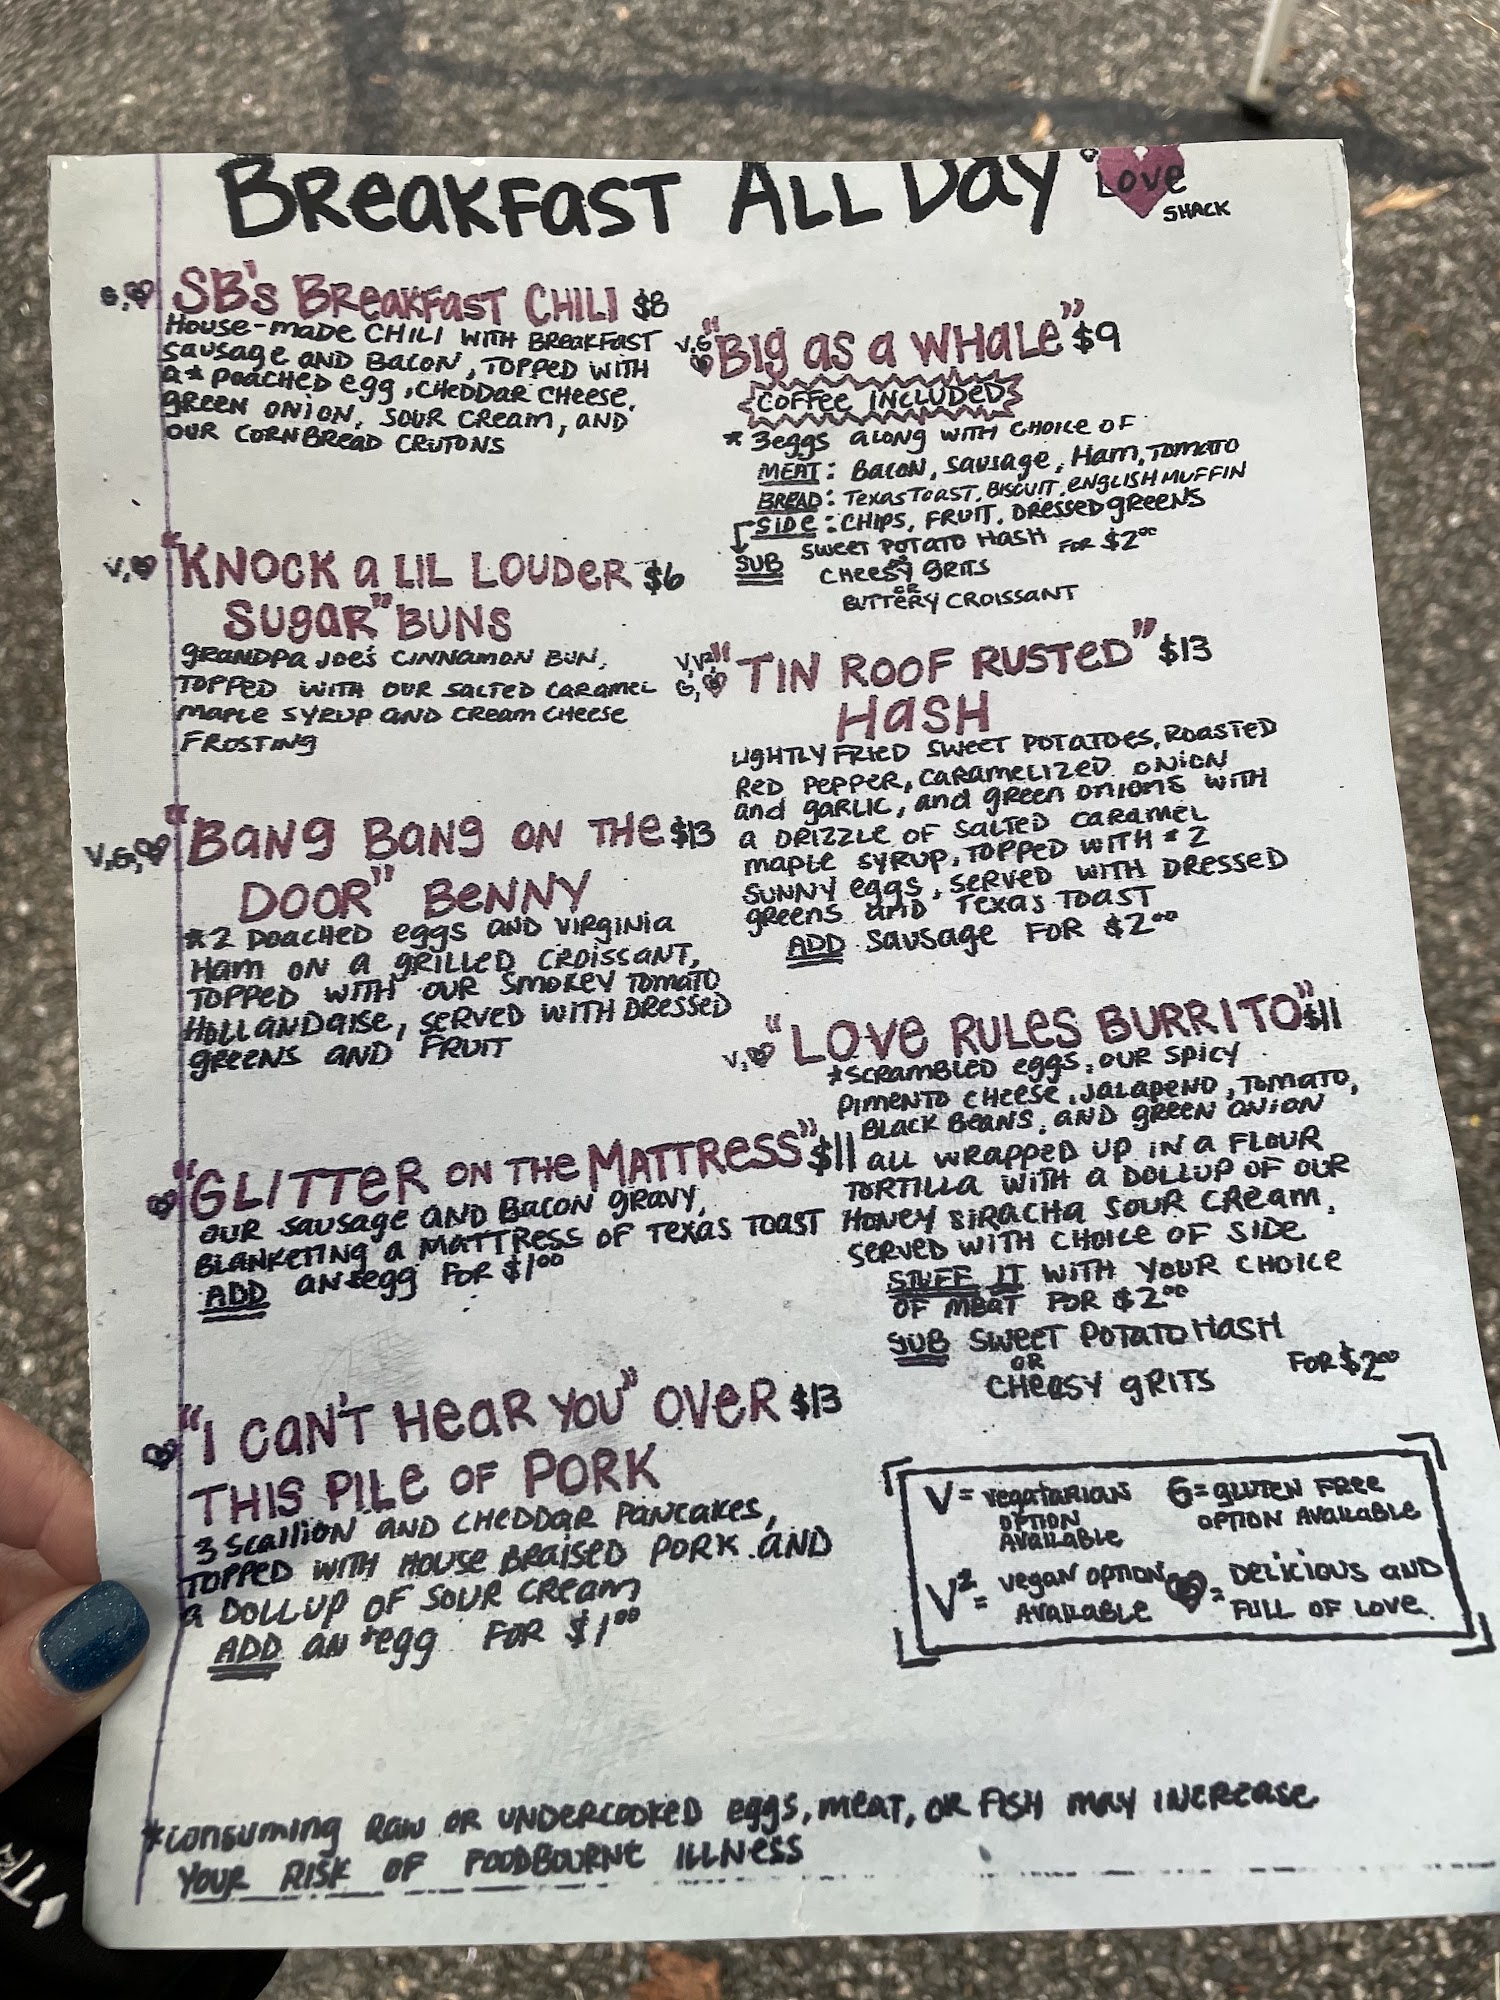 BREAKFAST ALL DAY
LOVE
SHACK
G,
SB's BREAKFAST CHILI $8
HOUSE-MADE CHILI WITH BREAKFAST
SAUSAGE AND BACON, TOPPED WITH
A * POACHED EGG, CHEDDAR CHEESE,
GREEN ONION, SOUR CREAM, AND
OUR CORNBREAD CRUTONS
V,
"KNOCK A LIL LOUDER $6
SUGAR" BUNS
GRANDPA JOE'S CINNAMON BUN,
TOPPED WITH OUR SALTED CARAMEL
MAPLE SYRUP AND CREAM CHEESE
FROSTING
V,G,
"BANG BANG ON THE $13
DOOR" BENNY
*2 POACHED EGGS AND VIRGINIA
HAM ON A GRILLED CROISSANT,
TOPPED WITH OUR SMOKEY TOMATO
HOLLANDAISE, SERVED WITH DRESSED
GREENS AND FRUIT
"GLITTER ON THE MATTRESS" $11
OUR SAUSAGE AND BACON GRAVY,
BLANKETING A MATTRESS OF TEXAS TOAST
ADD AN *EGG FOR $1.00
"I CAN'T HEAR YOU" OVER $13
THIS PILE OF PORK
3 SCALLION AND CHEDDAR PANCAKES,
TOPPED WITH HOUSE BRAISED PORK AND
A DOLLUP OF SOUR CREAM
ADD AN *EGG FOR $1.00
V,G
"BIG AS A WHALE" $9
COFFEE INCLUDED
* 3 EGGS ALONG WITH CHOICE OF
MEAT: BACON, SAUSAGE, HAM, TOMATO
BREAD: TEXAS TOAST, BISCUIT, ENGLISH MUFFIN
SIDE: CHIPS, FRUIT, DRESSED GREENS
SUB SWEET POTATO HASH FOR $2.00
OR
CHEESY GRITS
OR
BUTTERY CROISSANT
V,V²,
G,
"TIN ROOF RUSTED" $13
HASH
LIGHTLY FRIED SWEET POTATOES, ROASTED
RED PEPPER, CARAMELIZED ONION
AND GARLIC, AND GREEN ONIONS WITH
A DRIZZLE OF SALTED CARAMEL
MAPLE SYRUP, TOPPED WITH * 2
SUNNY EGGS, SERVED WITH DRESSED
GREENS AND TEXAS TOAST
ADD SAUSAGE FOR $2.00
V,
"LOVE RULES BURRITO" $11
*SCRAMBLED EGGS, OUR SPICY
PIMENTO CHEESE, JALAPENO, TOMATO,
BLACK BEANS, AND GREEN ONION
ALL WRAPPED UP IN A FLOUR
TORTILLA WITH A DOLLUP OF OUR
HONEY SIRACHA SOUR CREAM,
SERVED WITH CHOICE OF SIDE
STUFF IT WITH YOUR CHOICE
OF MEAT FOR $2.00
SUB SWEET POTATO HASH
OR
CHEESY GRITS FOR $2.00
V = VEGATARIAN
OPTION
AVAILABLE
G = GLUTEN FREE
OPTION AVAILABLE
V² = VEGAN OPTION
AVAILABLE
= DELICIOUS AND
FULL OF LOVE.
*CONSUMING RAW OR UNDERCOOKED EGGS, MEAT, OR FISH MAY INCREASE
YOUR RISK OF FOODBOURNE ILLNESS